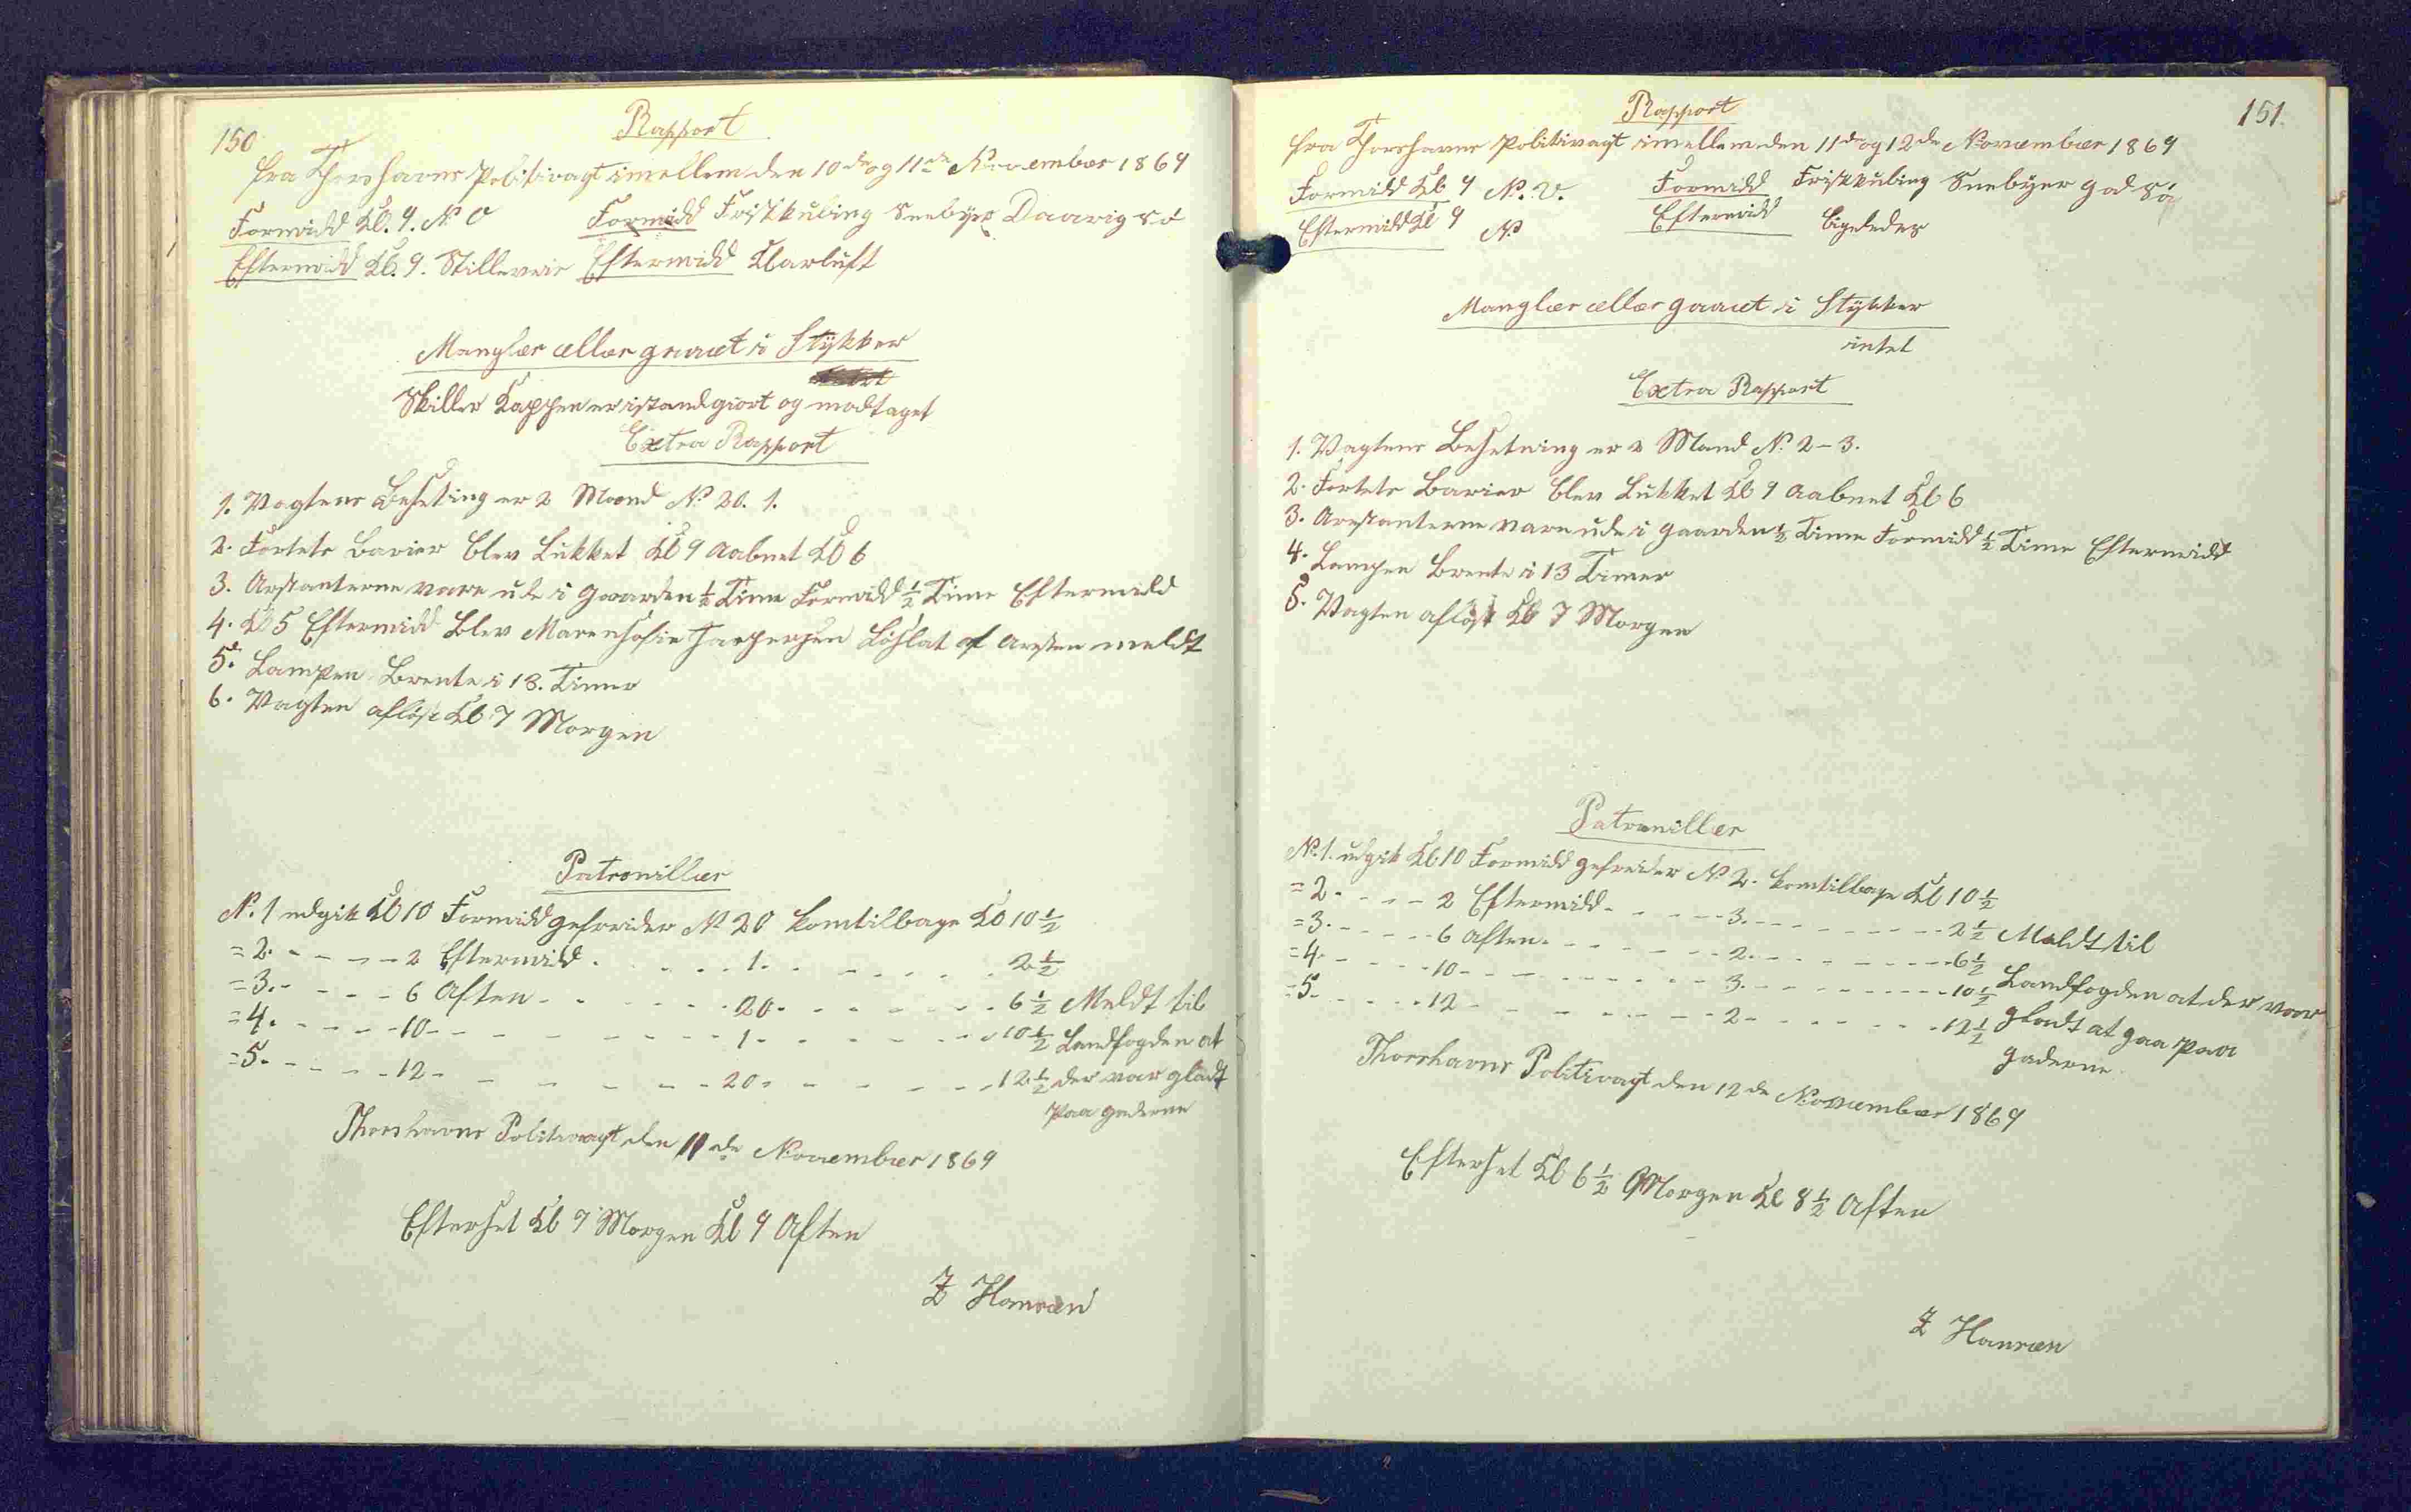 150
Rapport
fra Thorshavns Politivagt imellem den 10de og 11de November 1869
Formidd Kl. 9. N O
Formidd Friskkuling Snebyer Daarig Sö
Eftermidd Kl. 9. Stilleveir
Eftermidd Klarluft
Mangler eller gaaet i Stykker
Skilder Kappen er istandgiort og modtaget
Extra Rapport
1. Vagtens Beseting er 2 Mand No 20. 1.
2. Fortets Barier blev Lukket Kl 9 aabnet Kl 6
3. Arestanterne vare ude i Gaarden ½ Time Formidd ½ Time Eftermidd
4. Kl 5 Eftermidd Blev Maren Sofie Jaspersen Löslat af Aresten meldt
5. Lampen Brente i 13. Timer
6. Vagten aflöst Kl 7 Morgen
Patrouiller
No. 1 udgik Kl 10 Formidd gefreider No 20 komtilbage Kl 10 ½
= 2. - - - - 2 Eftermidd - - - - 1. - - - - - 2 ½
= 3. - - - - 6 Aften - - - - - 20. - - - - - 6 ½ Meldt til
= 4. - - - - 10 - - - - - - - 1. - - - - - 10 ½ Landfogden at
= 5. - - - - 12 - - - - - - - 20. - - - - - 12 ½ der var gladt
paa gaderne
Thorshavns Politivagt den 11de November 1869
Efterset Kl 7 Morgen Kl 9 Aften
Z Hansen
151.
Rapport
fra Thorshavns Politivagt imellem den 11de og 12de November 1869
Formidd Kl 9 N. V.
Formidd Friskkuling Sneebyer god Sö
Eftermidd Kl 9 N
Eftermidd ligeledes
Mangler eller gaaet i Stykker
intet
Extra Rapport
1. Vagtens Besetning er 2 Mand No 2-3.
2. Fortets Barier blev Lukket Kl 9 aabnet Kl 6
3. Arestanterne vare ude i gaarden ½ Time Formidd ½ Time Eftermidd
4. Lampen Brente i 13 Timer
5. Vagten aflöst Kl 7 Morgen
Patrouiller
No. 1. udgik Kl 10 Formidd gefreider No 2. komtilbage Kl 10 ½
= 2. - - - - 2 Eftermidd - - - - 3. - - - - - 2 ½ Meldt til
= 3. - - - - 6 Aften - - - - - 2. - - - - - 6 ½
= 4. - - - - 10 - - - - - - - 3. - - - - - 10 ½ Landfogden at der vaar
= 5. - - - - 12 - - - - - - - 2 - - - - - 12 ½ gladt at gaa paa
gaderne
Thorshavns Politivagt den 12de November 1869
Efterset Kl 6 ½ Morgen Kl 8 ½ Aften
Z Hansen